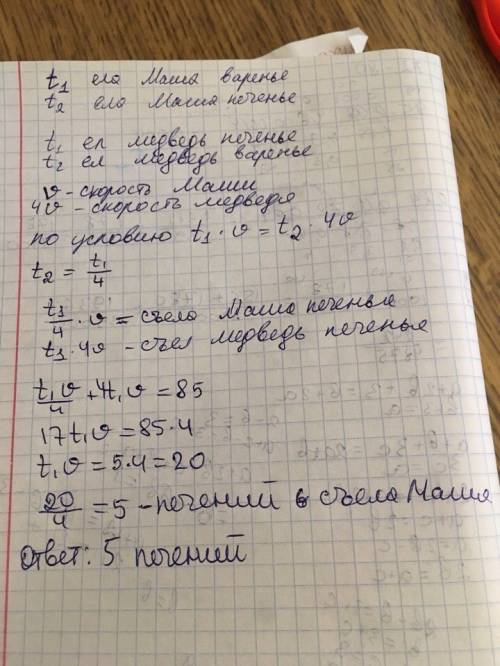 t₁ ела Маша варенье
t₂ ела Маша печенье
t₁ ел медведь печенье
t₂ ел медведь варенье
v - скорость Маши
4v - скорость медведя
по условию t₁ · v = t₂ · 4v
t₂ = t₁/4
t₁/4 · v = съела Маша печенье
t₁ · 4v - съел медведь печенье
t₁v/4 + 4t₁v = 85
17t₁v = 85·4
t₁v = 5·4 = 20
20/4 = 5 - печений съела Маша
ответ: 5 печений